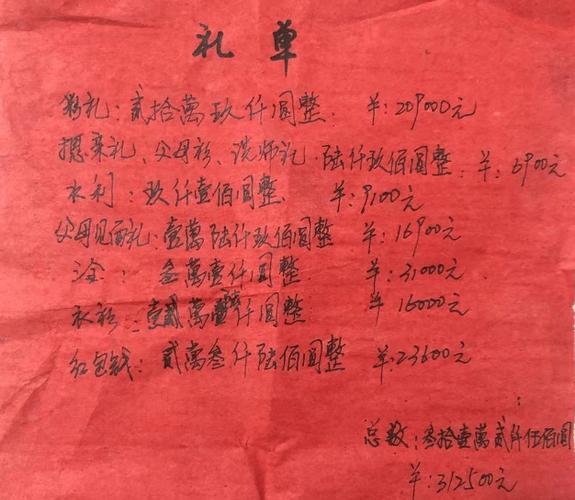 礼单
彩礼：贰拾萬玖仟圆整. 羊：209000元
摁亲礼、父母衫、谎师礼.陆仟玖佰圆整.羊：6900元
水利：玖仟壹佰圆整. 羊：9100元
父母见面礼：壹萬陆仟玖佰圆整 羊：16900元
金：叁萬壹仟圆整. 羊：31000元
衣衫：壹萬仟圆整 羊 16000元
红包钱：贰萬叁仟陆佰圆整 羊：23600元
总数：叁拾壹萬贰仟伍佰圆
羊：312500元